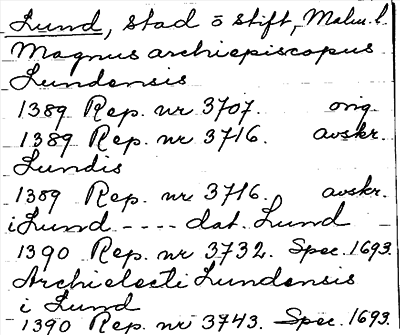 Lund, stad o stift, Malm. l.
Magnus archiepiscopus
Lundensis
1389 Rep. nr 3707. orig
1389 Rep. nr 3716. avskr.
Lundis
1389 Rep. nr 3716. avskr.
i Lund - - - - dat. Lund
1390 Rep. nr 3732. Spec. 1693.
Archielecti Lundensis
i Lund
1390 Rep. nr 3743. Spec. 1693.